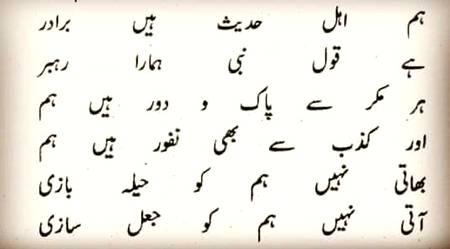 ہم اہل حدیث ہیں برادر
ہے قول نبی ہمارا رہبر
ہر مکر سے پاک و دور ہیں ہم
اور کذب سے بھی نفور ہیں ہم
بھاتی نہیں ہم کو حیلہ بازی
آتی نہیں ہم کو جعل سازی